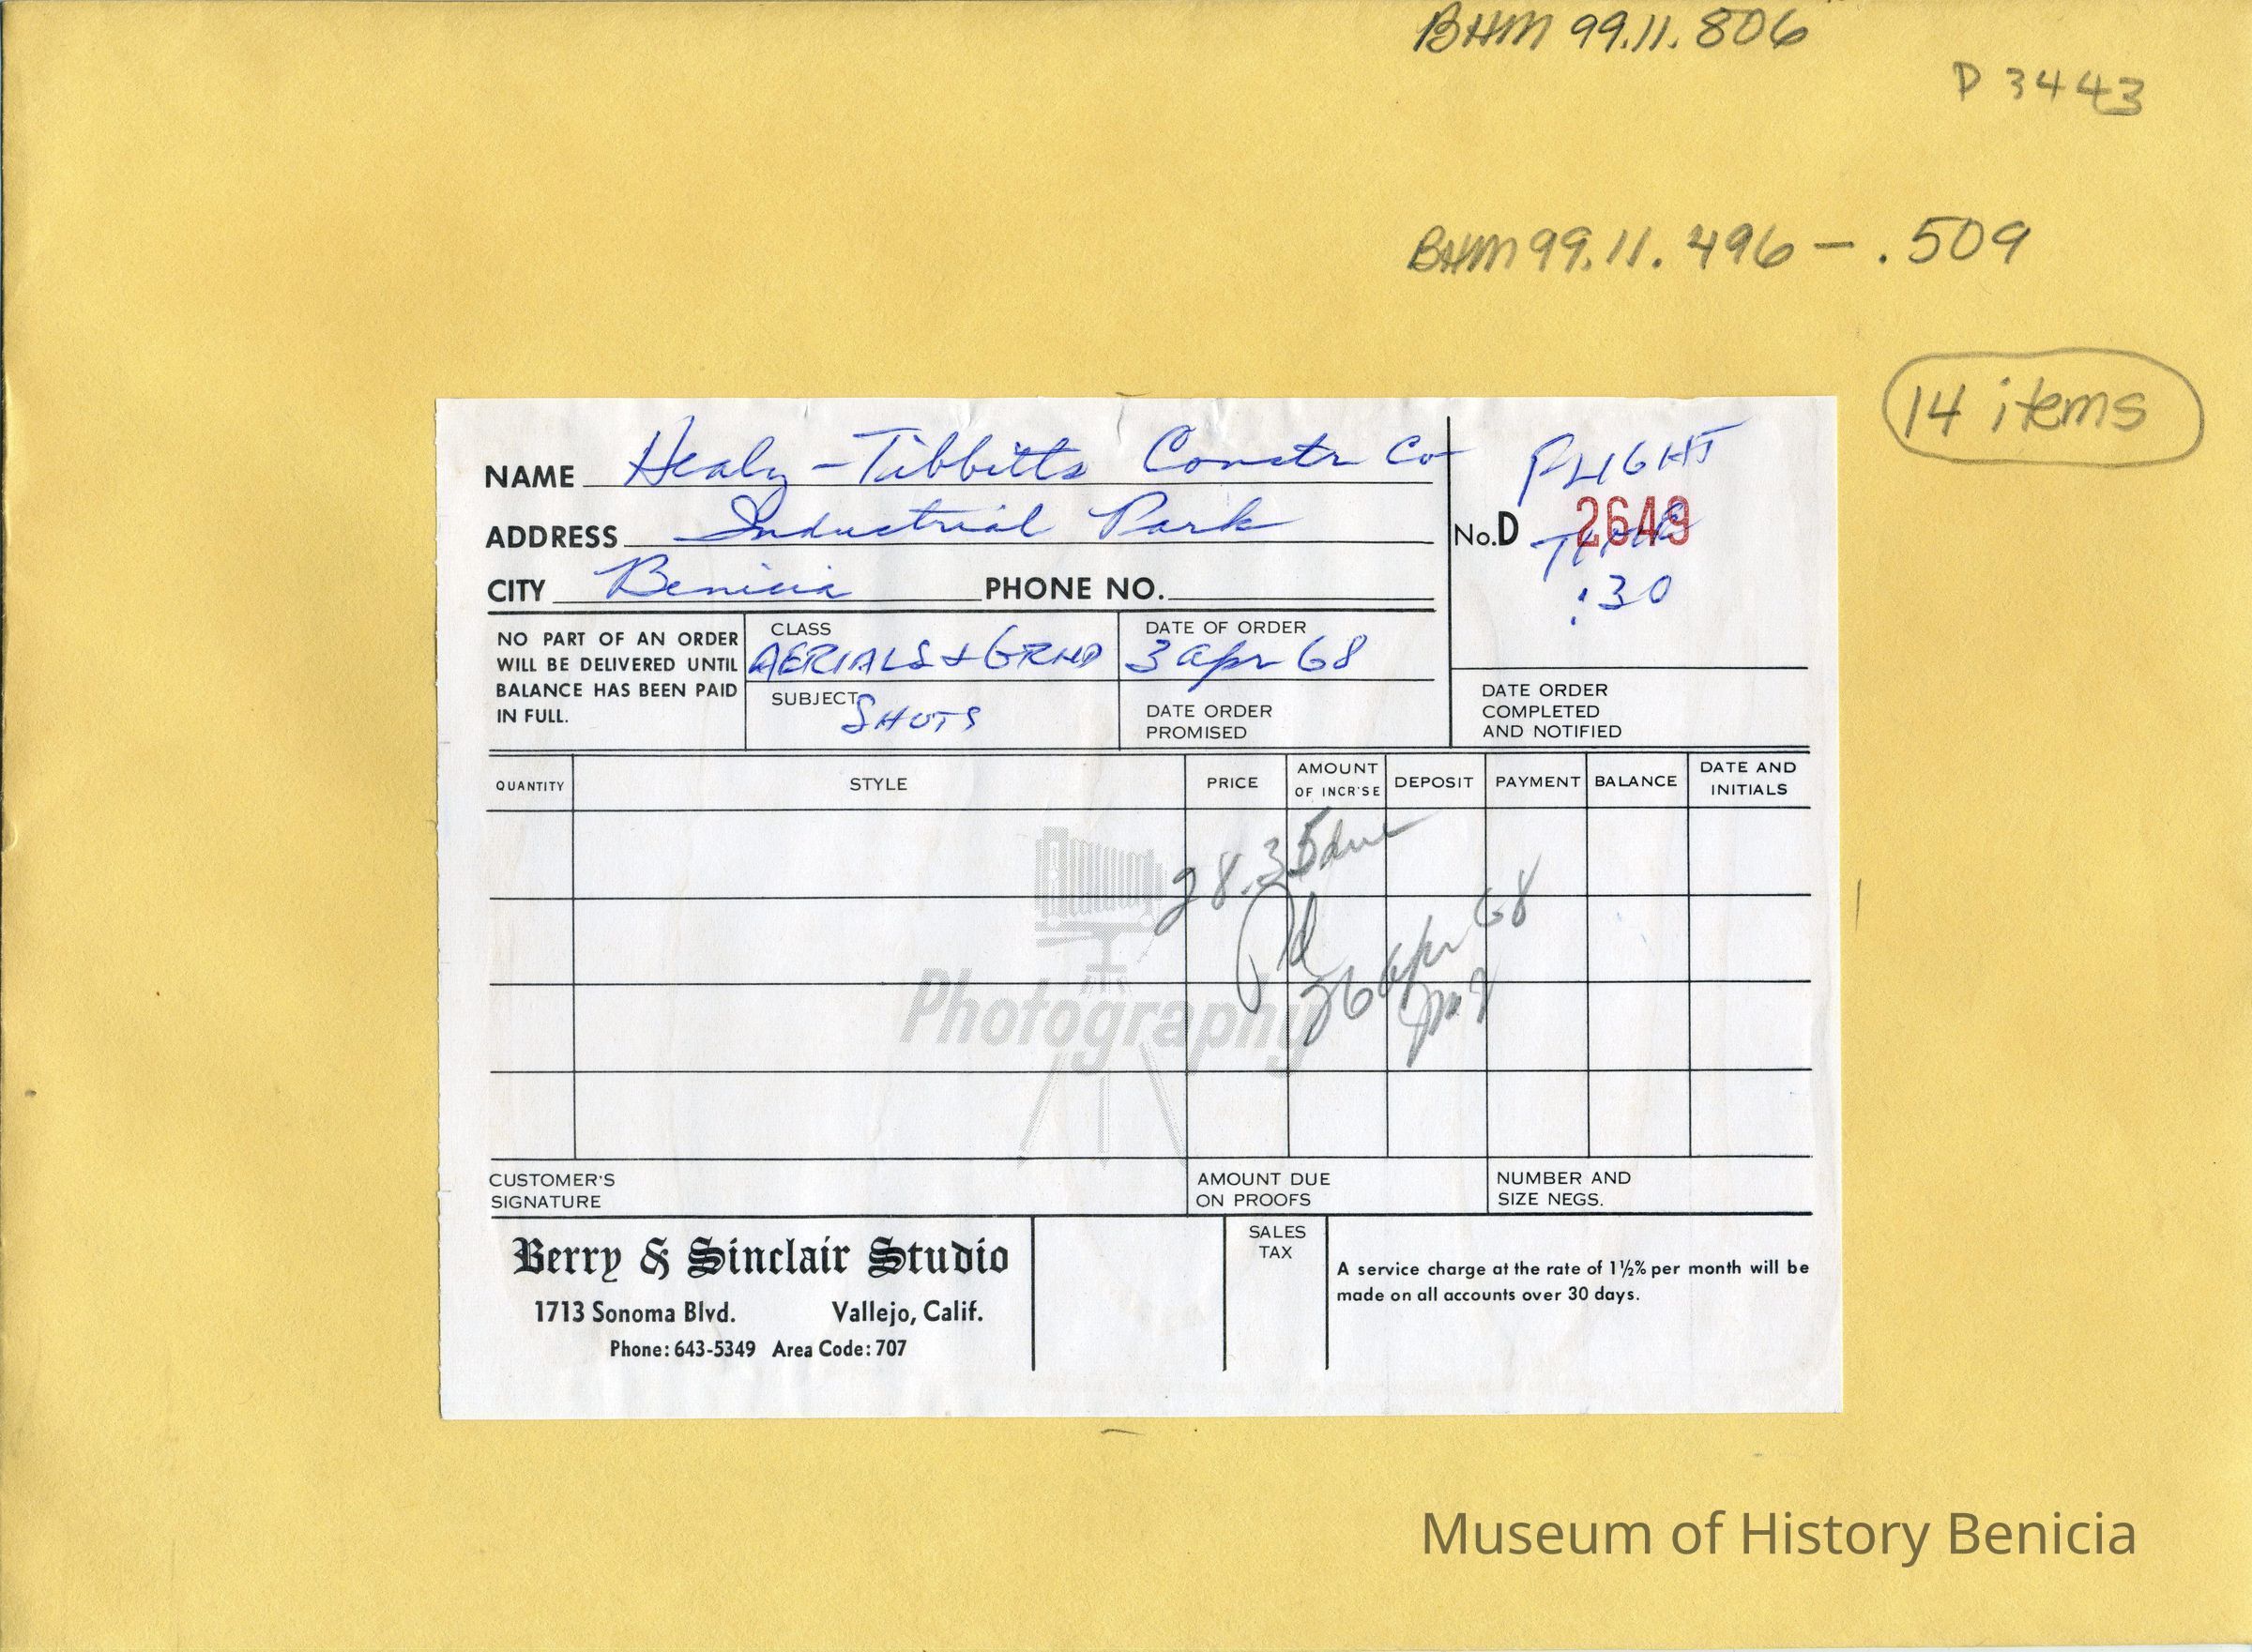 BHM 99.11.806
D 3443
BHM 99.11.496 - .509
14 items
NAME Healy-Tibbitts Constr Co
ADDRESS Industrial Park
CITY Benicia PHONE NO.
FLIGHT
No. D 2649
TIME
:30
NO PART OF AN ORDER
WILL BE DELIVERED UNTIL
BALANCE HAS BEEN PAID
IN FULL.
CLASS
AERIALS & GRND
SUBJECT SHOTS
DATE OF ORDER
3 Apr 68
DATE ORDER
PROMISED
DATE ORDER
COMPLETED
AND NOTIFIED
QUANTITY STYLE PRICE AMOUNT OF INCR'SE DEPOSIT PAYMENT BALANCE DATE AND INITIALS
28.35 due
Pd
26 Apr 68
Photography
CUSTOMER'S
SIGNATURE
AMOUNT DUE
ON PROOFS
NUMBER AND
SIZE NEGS.
Berry & Sinclair Studio
1713 Sonoma Blvd. Vallejo, Calif.
Phone: 643-5349 Area Code: 707
SALES
TAX
A service charge at the rate of 1½% per month will be
made on all accounts over 30 days.
Museum of History Benicia